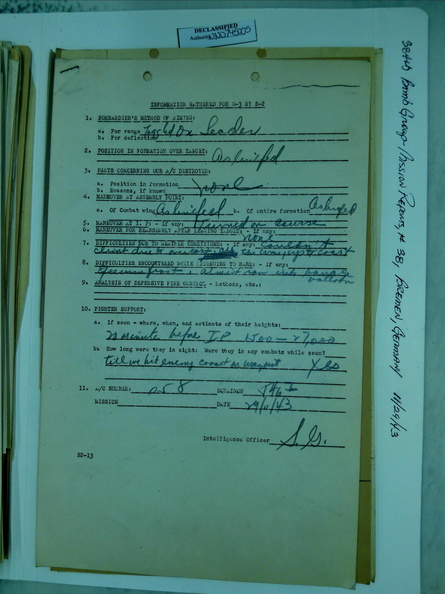 DECLASSIFIED
Authority NND 745005
INFORMATION GATHERED FOR G-3 BY S-2
1. BOMBARDIER'S METHOD OF AIMING:
a. For range Toggled On Leader
b. For deflection
2. POSITION IN FORMATION OVER TARGET:
As briefed
3. FACTS CONCERNING OUR A/C DESTROYED:
a. Position in formation none
b. Reasons, if known
4. MANEUVER AT ASSEMBLY POINT:
a. Of Combat wing As briefed b. Of entire formation As briefed
5. MANEUVER AT I. P: - if any: Turned on course
6. MANEUVER FOR REASSEMBLY AFTER LEAVING TARGET: - if any: none
7. DIFFICULTIES DUE TO WEATHER CONDITIONS: - if any: Couldn't
climb due to overcast, all the way up to coast
8. DIFFICULTIES ENCOUNTERED WHILE RETURNING TO BASE: - if any:
front. almost ran into
9. ANALYSIS OF DEFENSIVE FIRE CONTROL - Methods, etc.:
10. FIGHTER SUPPORT:
a. If seen - where, when, and estimate of their heights:
20 minutes before I.P. 27,000
b. How long were they in sight: Were they in any combats while seen?
till we hit enemy coast on way out Yes
11. A/C NUMBER: 058 SQUADRON 546
MISSION DATE 29/11/43
Intelligence Officer S.G.
S2-13
384th Bomb Group - Mission Reports, # 38, BREMEN, GERMANY 11/29/43